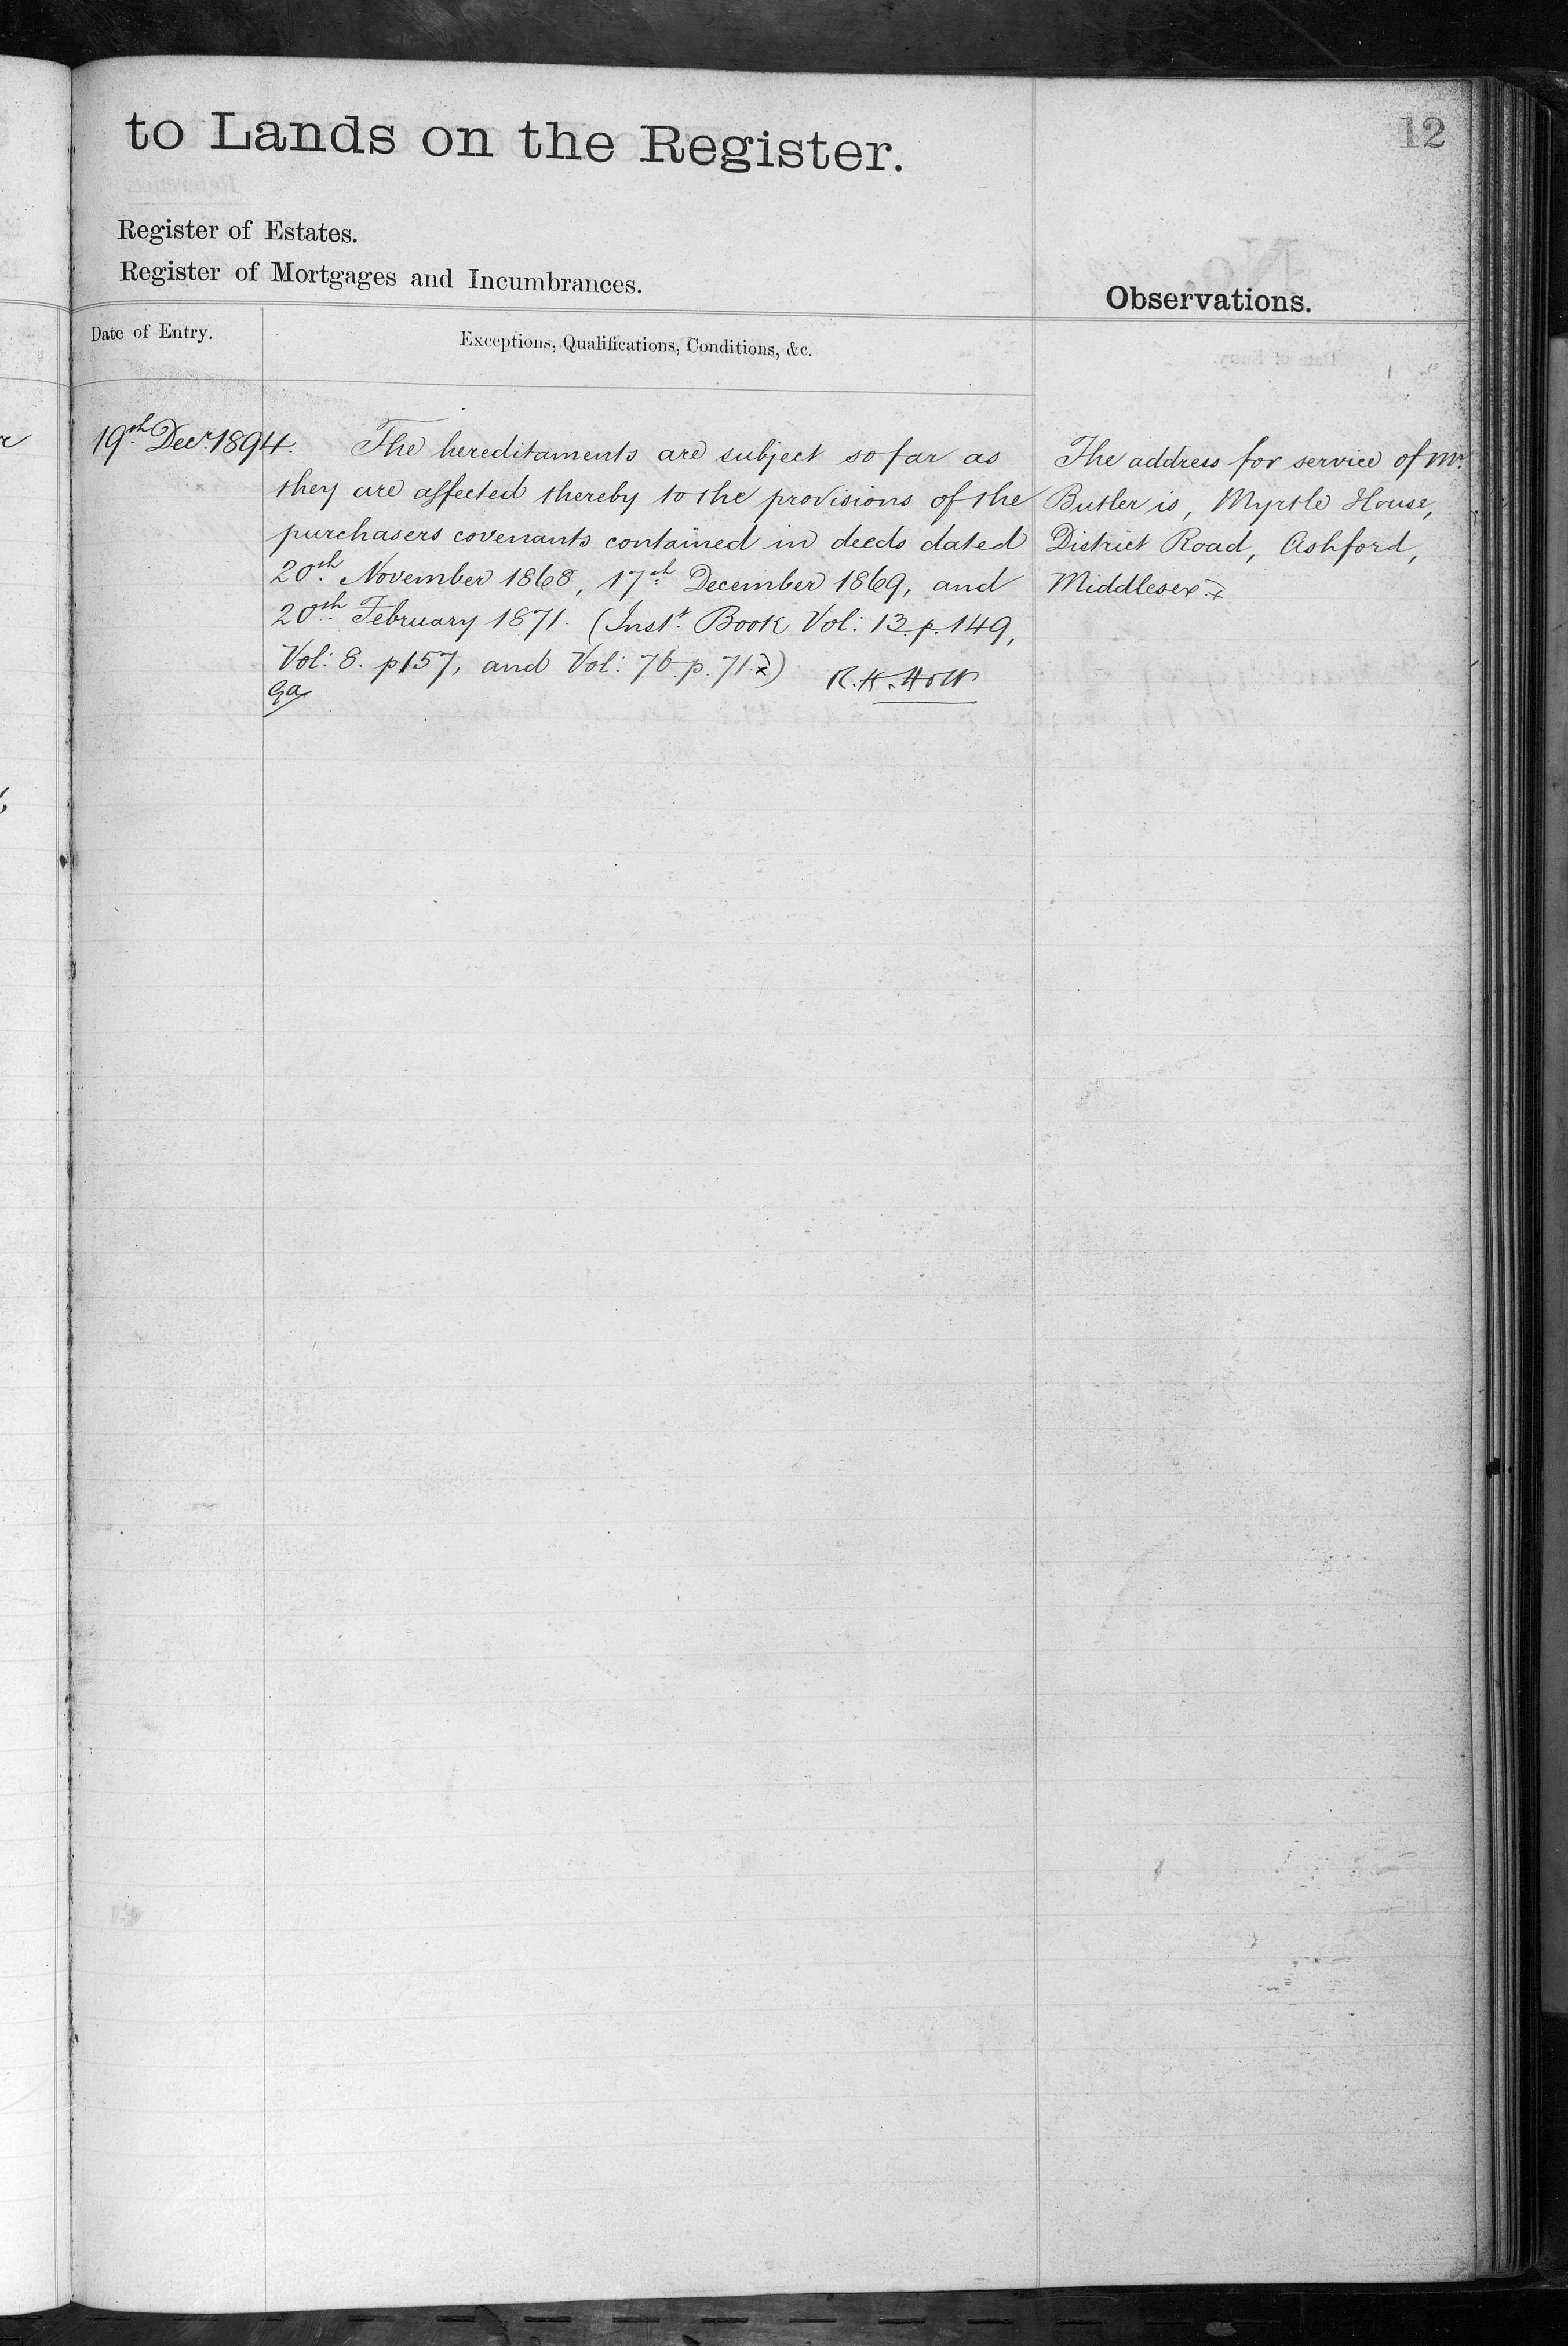 to Lands on the Register.
12
Register of Estates.
Register of Mortgages and Incumbrances.
Observations.
Date of Entry.
Exceptions, Qualifications, Conditions, &c.
19th Decr. 1894.
The hereditaments are subject so far as
they are affected thereby to the provisions of the
purchasers covenants contained in deeds dated
20th November 1868, 17th December 1869, and
20th February 1871. (Inst. Book Vol: 13 p. 149,
Vol: 8. p 157, and Vol: 76 p. 71.)
R.H. Holt
The address for service of Mr.
Butler is, Myrtle House,
District Road, Ashford,
Middlesex